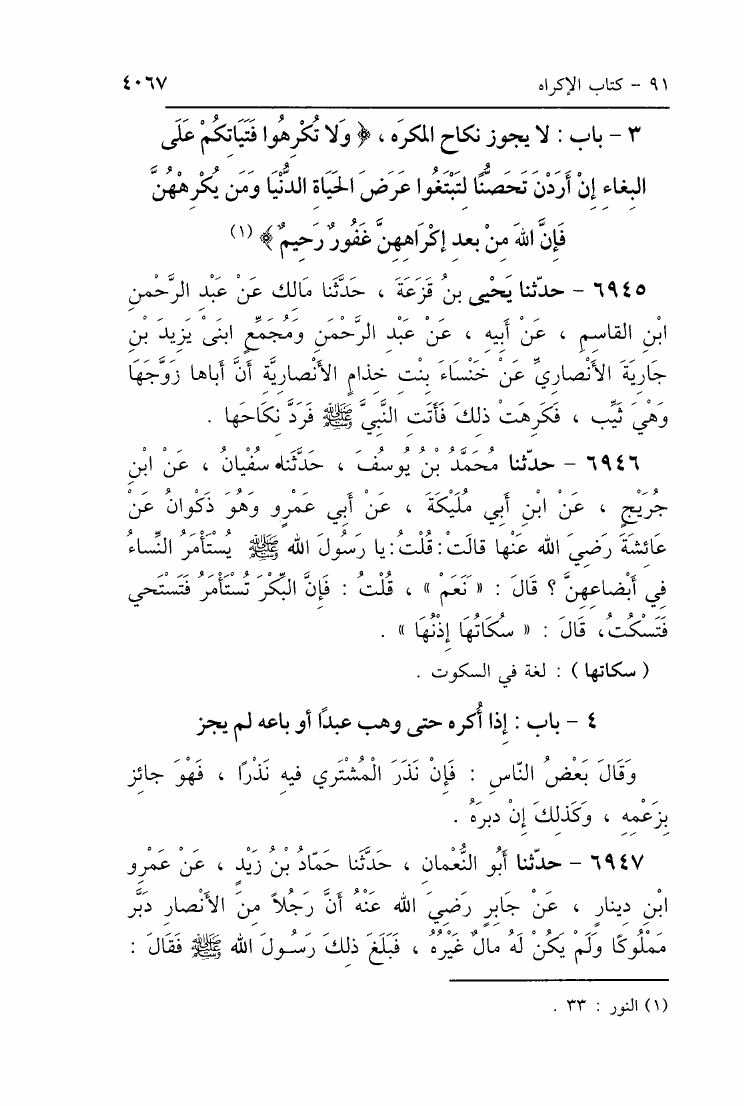 ٩١ - كتاب الإكراه ٤٠٦٧
٣ - باب : لا يجوز نكاح المكرَه ، ﴿ وَلا تُكْرِهُوا فَتَيَاتِكُمْ عَلَى
البِغاءِ إنْ أَرَدْنَ تَحَصُّنًا لِتَبْتَغُوا عَرَضَ الحَيَاةِ الدُّنْيَا وَمَن يُكْرِهْهُنَّ
فَإِنَّ اللهَ مِنْ بَعدِ إِكْرَاهِهِنَّ غَفُورٌ رَحِيمٌ ﴾ (١)
٦٩٤٥ - حدّثنا يَحْيى بنُ قَزَعَةَ ، حَدَّثَنا مَالك عَنْ عَبْدِ الرَّحْمنِ
ابْنِ القاسِمِ ، عَنْ أَبِيهِ ، عَنْ عَبْدِ الرَّحْمَنِ وَمُجَمِّعٍ ابنَىْ يَزِيدَ بْنِ
جَارِيَةَ الأَنْصارِيِّ عَنْ خَنْسَاءَ بِنْتِ خِذامٍ الأَنْصارِيَّةِ أَنَّ أَباها زَوَّجَهَا
وَهْيَ ثَيِّب ، فَكَرِهَتْ ذلِكَ فَأَتَتِ النَّبِيَّ ﷺ فَرَدَّ نِكَاحَها .
٦٩٤٦ - حدّثنا مُحَمَّدُ بْنُ يُوسُفَ ، حَدَّثَنا سُفْيانُ ، عَنْ ابْنِ
جُرَيْجٍ ، عَنْ ابْنِ أَبِي مُلَيْكَةَ ، عَنْ أَبِي عَمْرٍو وَهُوَ ذَكْوانُ عَنْ
عَائِشَةَ رَضِيَ الله عَنْها قالَتْ : قُلْتُ : يا رَسُولَ الله ﷺ يُسْتَأْمَرُ النِّساءُ
فِي أَبْضاعِهِنَّ ؟ قالَ : « نَعَمْ » ، قُلْتُ : فَإِنَّ البِّكْرَ تُسْتَأْمَرُ فَتَسْتَحي
فَتَسْكُتُ، قَالَ : « سُكَاتُهَا إِذْنُهَا » .
( سكاتها ) : لغة في السكوت .
٤ - باب : إذا أُكره حتى وهب عبدًا أو باعه لم يجز
وَقَالَ بَعْضُ النّاسِ : فَإِنْ نَذَرَ الْمُشْتَرِي فِيهِ نَذْرًا ، فَهْوَ جائِز
بِزَعْمِهِ ، وَكَذلِكَ إِنْ دبرَهُ .
٦٩٤٧ - حدّثنا أَبُو النُّعْمانِ ، حَدَّثَنا حَمّادُ بْنُ زَيْدٍ ، عَنْ عَمْرِو
ابْنِ دِينارٍ ، عَنْ جَابِرٍ رَضِيَ الله عَنْهُ أَنَّ رَجُلاً مِنَ الأَنْصارِ دَبَّر
مَمْلُوكًا وَلَمْ يَكُنْ لَهُ مالٌ غَيْرُهُ ، فَبَلَغَ ذلِكَ رَسُولَ الله ﷺ فَقالَ :
(١) النور : ٣٣ .